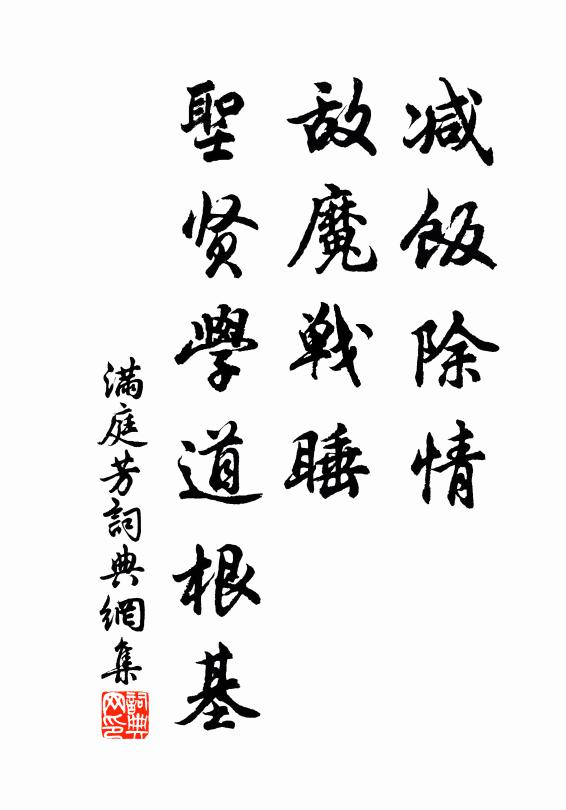 减飯除情
敌魔戦睡
聖贤學道根基
满庭芳詞典網集
詞典
网印